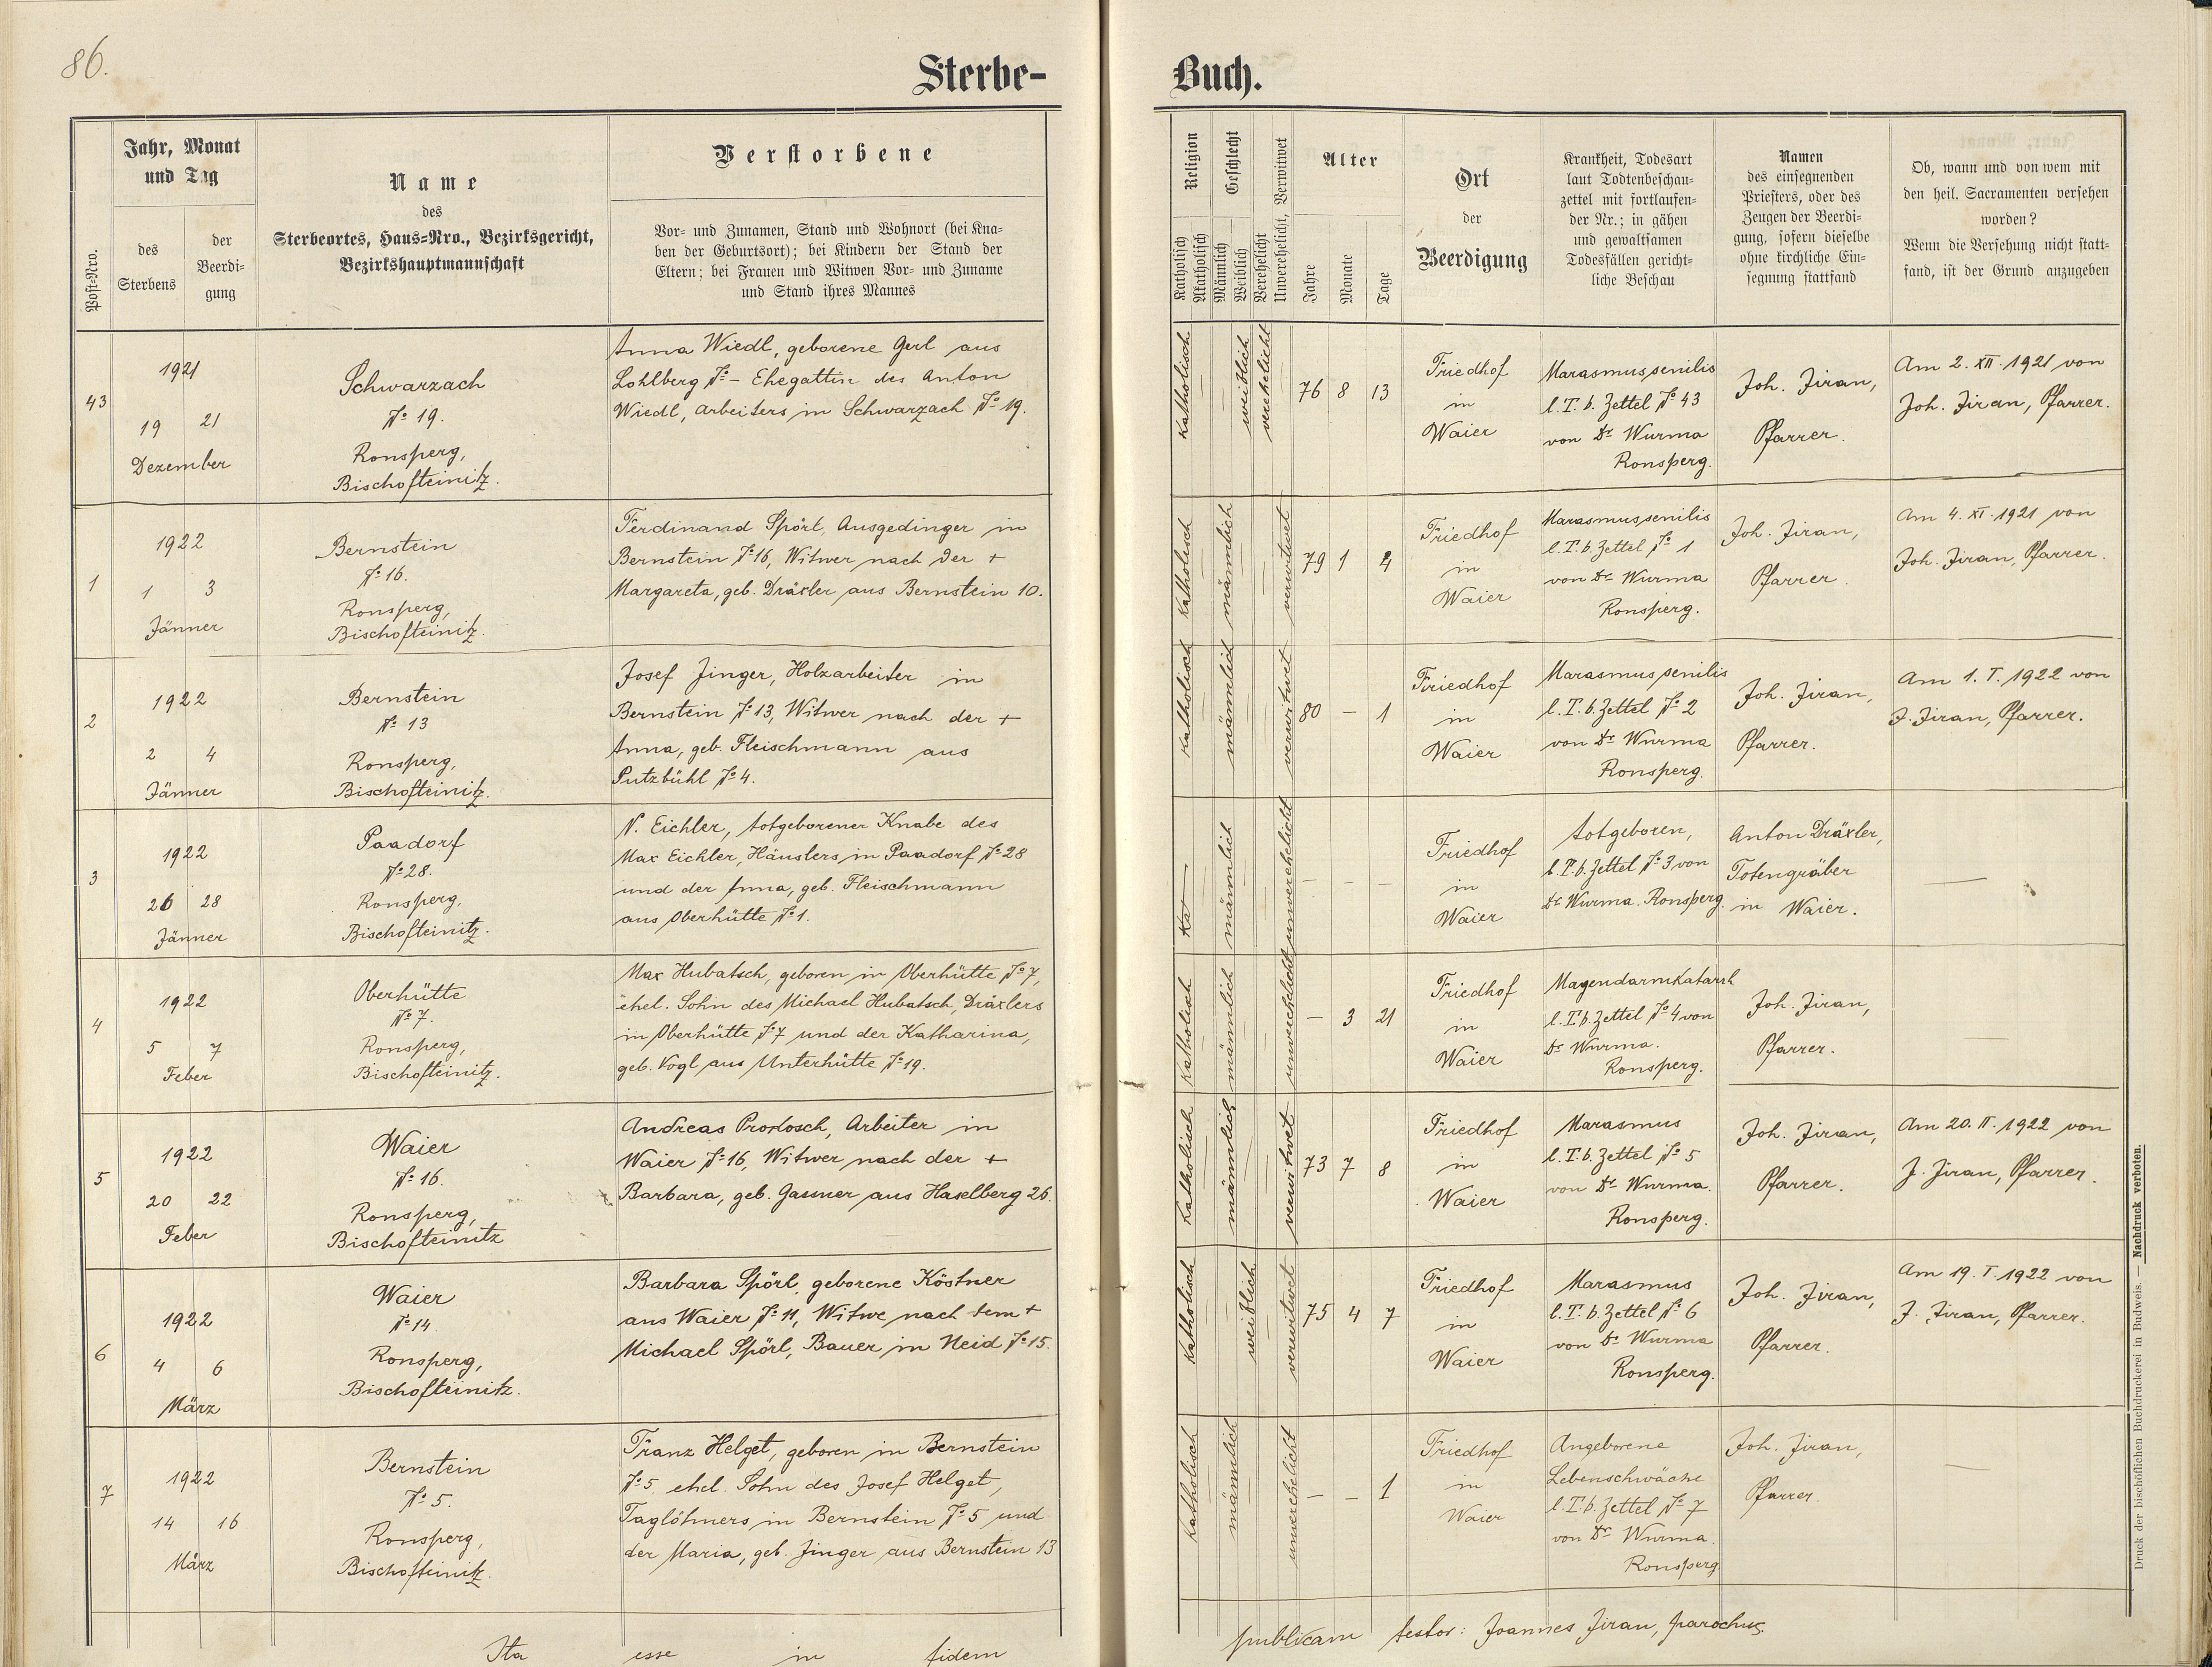 86.
Sterbe-
Jahr, Monat
und Tag
Verstorbene
Name
des
Sterbeortes, Haus-Nro., Bezirksgericht,
Bezirkshauptmannschaft
Post-Nro.
des
Sterbens
der
Beerdi-
gung
Vor- und Zunamen, Stand und Wohnort (bei Kna-
ben der Geburtsort); bei Kindern der Stand der
Eltern; bei Frauen und Witwen Vor- und Zuname
und Stand ihres Mannes
43
1921
19 21
Dezember
Schwarzach
No 19.
Ronsperg,
Bischofteinitz.
Anna Wiedl, geborene Gerl aus
Lohlberg No – Ehegattin des Anton
Wiedl, Arbeiters in Schwarzach No 19.
1
1922
1 3
Jänner
Bernstein
No 16.
Ronsperg,
Bischofteinitz.
Ferdinand Spörl, Ausgedinger in
Bernstein No 16, Witwer nach der +
Margareta, geb. Dräxler aus Bernstein 10.
2
1922
2 4
Jänner
Bernstein
No 13
Ronsperg,
Bischofteinitz.
Josef Jinger, Holzarbeiter in
Bernstein No 13, Witwer nach der +
Anna, geb. Fleischmann aus
Putzbühl No 4.
3
1922
26 28
Jänner
Paadorf
No 28.
Ronsperg,
Bischofteinitz.
N. Eichler, totgeborener Knabe des
Max Eichler, Häuslers in Paadorf No 28
und der Anna, geb. Fleischmann
aus Oberhütte No 1.
4
1922
5 7
Feber
Oberhütte
No 7.
Ronsperg,
Bischofteinitz.
Max Hubatsch, geboren in Oberhütte No 7,
ehel. Sohn des Michael Hubatsch, Dräxlers
in Oberhütte No 7 und der Katharina,
geb. Vogl aus Unterhütte No 19.
5
1922
20 22
Feber
Waier
No 16.
Ronsperg,
Bischofteinitz
Andreas Prokosch, Arbeiter in
Waier No 16, Witwer nach der +
Barbara, geb. Gassner aus Haselberg 26.
6
1922
4 6
März
Waier
No 14.
Ronsperg,
Bischofteinitz.
Barbara Spörl, geborene Köstner
aus Waier No 11, Witwe nach dem +
Michael Spörl, Bauer in Neid No 15.
7
1922
14 16
März
Bernstein
No 5.
Ronsperg,
Bischofteinitz.
Franz Helget, geboren in Bernstein
No 5 ehel. Sohn des Josef Helget,
Taglöhners in Bernstein No 5 und
der Maria, geb. Jinger aus Bernstein 13
Ita esse in fidem
Buch.
Religion
Katholisch
Akatholisch
Geschlecht
Männlich
Weiblich
Verehelicht
Unverehelicht, Verwitwet
Alter
Jahre
Monate
Tage
Ort
der
Beerdigung
Krankheit, Todesart
laut Todtenbeschau-
zettel mit fortlaufen-
der Nr.; in gähen
und gewaltsamen
Todesfällen gericht-
liche Beschau
Namen
des einsegnenden
Priesters, oder des
Zeugen der Beerdi-
gung, sofern dieselbe
ohne kirchliche Ein-
segnung stattfand
Ob, wann und von wem mit
den heil. Sacramenten versehen
worden?
Wenn die Versehung nicht statt-
fand, ist der Grund anzugeben
Katholisch
weiblich
verehelicht
76 8 13
Friedhof
in
Waier
Marasmus senilis
l. T. b. Zettel No 43
von Dr Wurma
Ronsperg.
Joh. Jiran,
Pfarrer.
Am 2. XII. 1921 von
Joh. Jiran, Pfarrer.
Katholisch
männlich
verwitwet
79 1 4
Friedhof
in
Waier
Marasmus senilis
l. T. b. Zettel No 1
von Dr Wurma
Ronsperg.
Joh. Jiran,
Pfarrer.
Am 4. XI. 1921 von
Joh. Jiran, Pfarrer.
Katholisch
männlich
verwitwet
80 – 1
Friedhof
in
Waier
Marasmus senilis
l. T. b. Zettel No 2
von Dr Wurma
Ronsperg.
Joh. Jiran,
Pfarrer.
Am 1. I. 1922 von
J. Jiran, Pfarrer.
Kat
männlich
unverehelicht
– – –
Friedhof
in
Waier
totgeboren,
l. T. b. Zettel No 3 von
Dr Wurma. Ronsperg.
Anton Dräxler,
Totengräber
in Waier.
—
Katholisch
männlich
unverehelicht
– 3 21
Friedhof
in
Waier
Magendarmkatarrh
l. T. b. Zettel No 4 von
Dr Wurma.
Ronsperg.
Joh. Jiran,
Pfarrer.
—
Katholisch
männlich
verwitwet
73 7 8
Friedhof
in
Waier
Marasmus
l. T. b. Zettel No 5
von Dr Wurma.
Ronsperg.
Joh. Jiran,
Pfarrer.
Am 20. II. 1922 von
J. Jiran, Pfarrer.
Katholisch
weiblich
verwitwet
75 4 7
Friedhof
in
Waier
Marasmus
l. T. b. Zettel No 6
von Dr Wurma
Ronsperg.
Joh. Jiran,
Pfarrer.
Am 19. I. 1922 von
J. Jiran, Pfarrer.
Katholisch
männlich
unverehelicht
– – 1
Friedhof
in
Waier
Angeborene
Lebenschwäche
l. T. b. Zettel No 7
von Dr Wurma.
Ronsperg.
Joh. Jiran,
Pfarrer.
—
publicam testor: Joannes Jiran, parochus
Druck der bischöflichen Buchdruckerei in Budweis. — Nachdruck verboten.